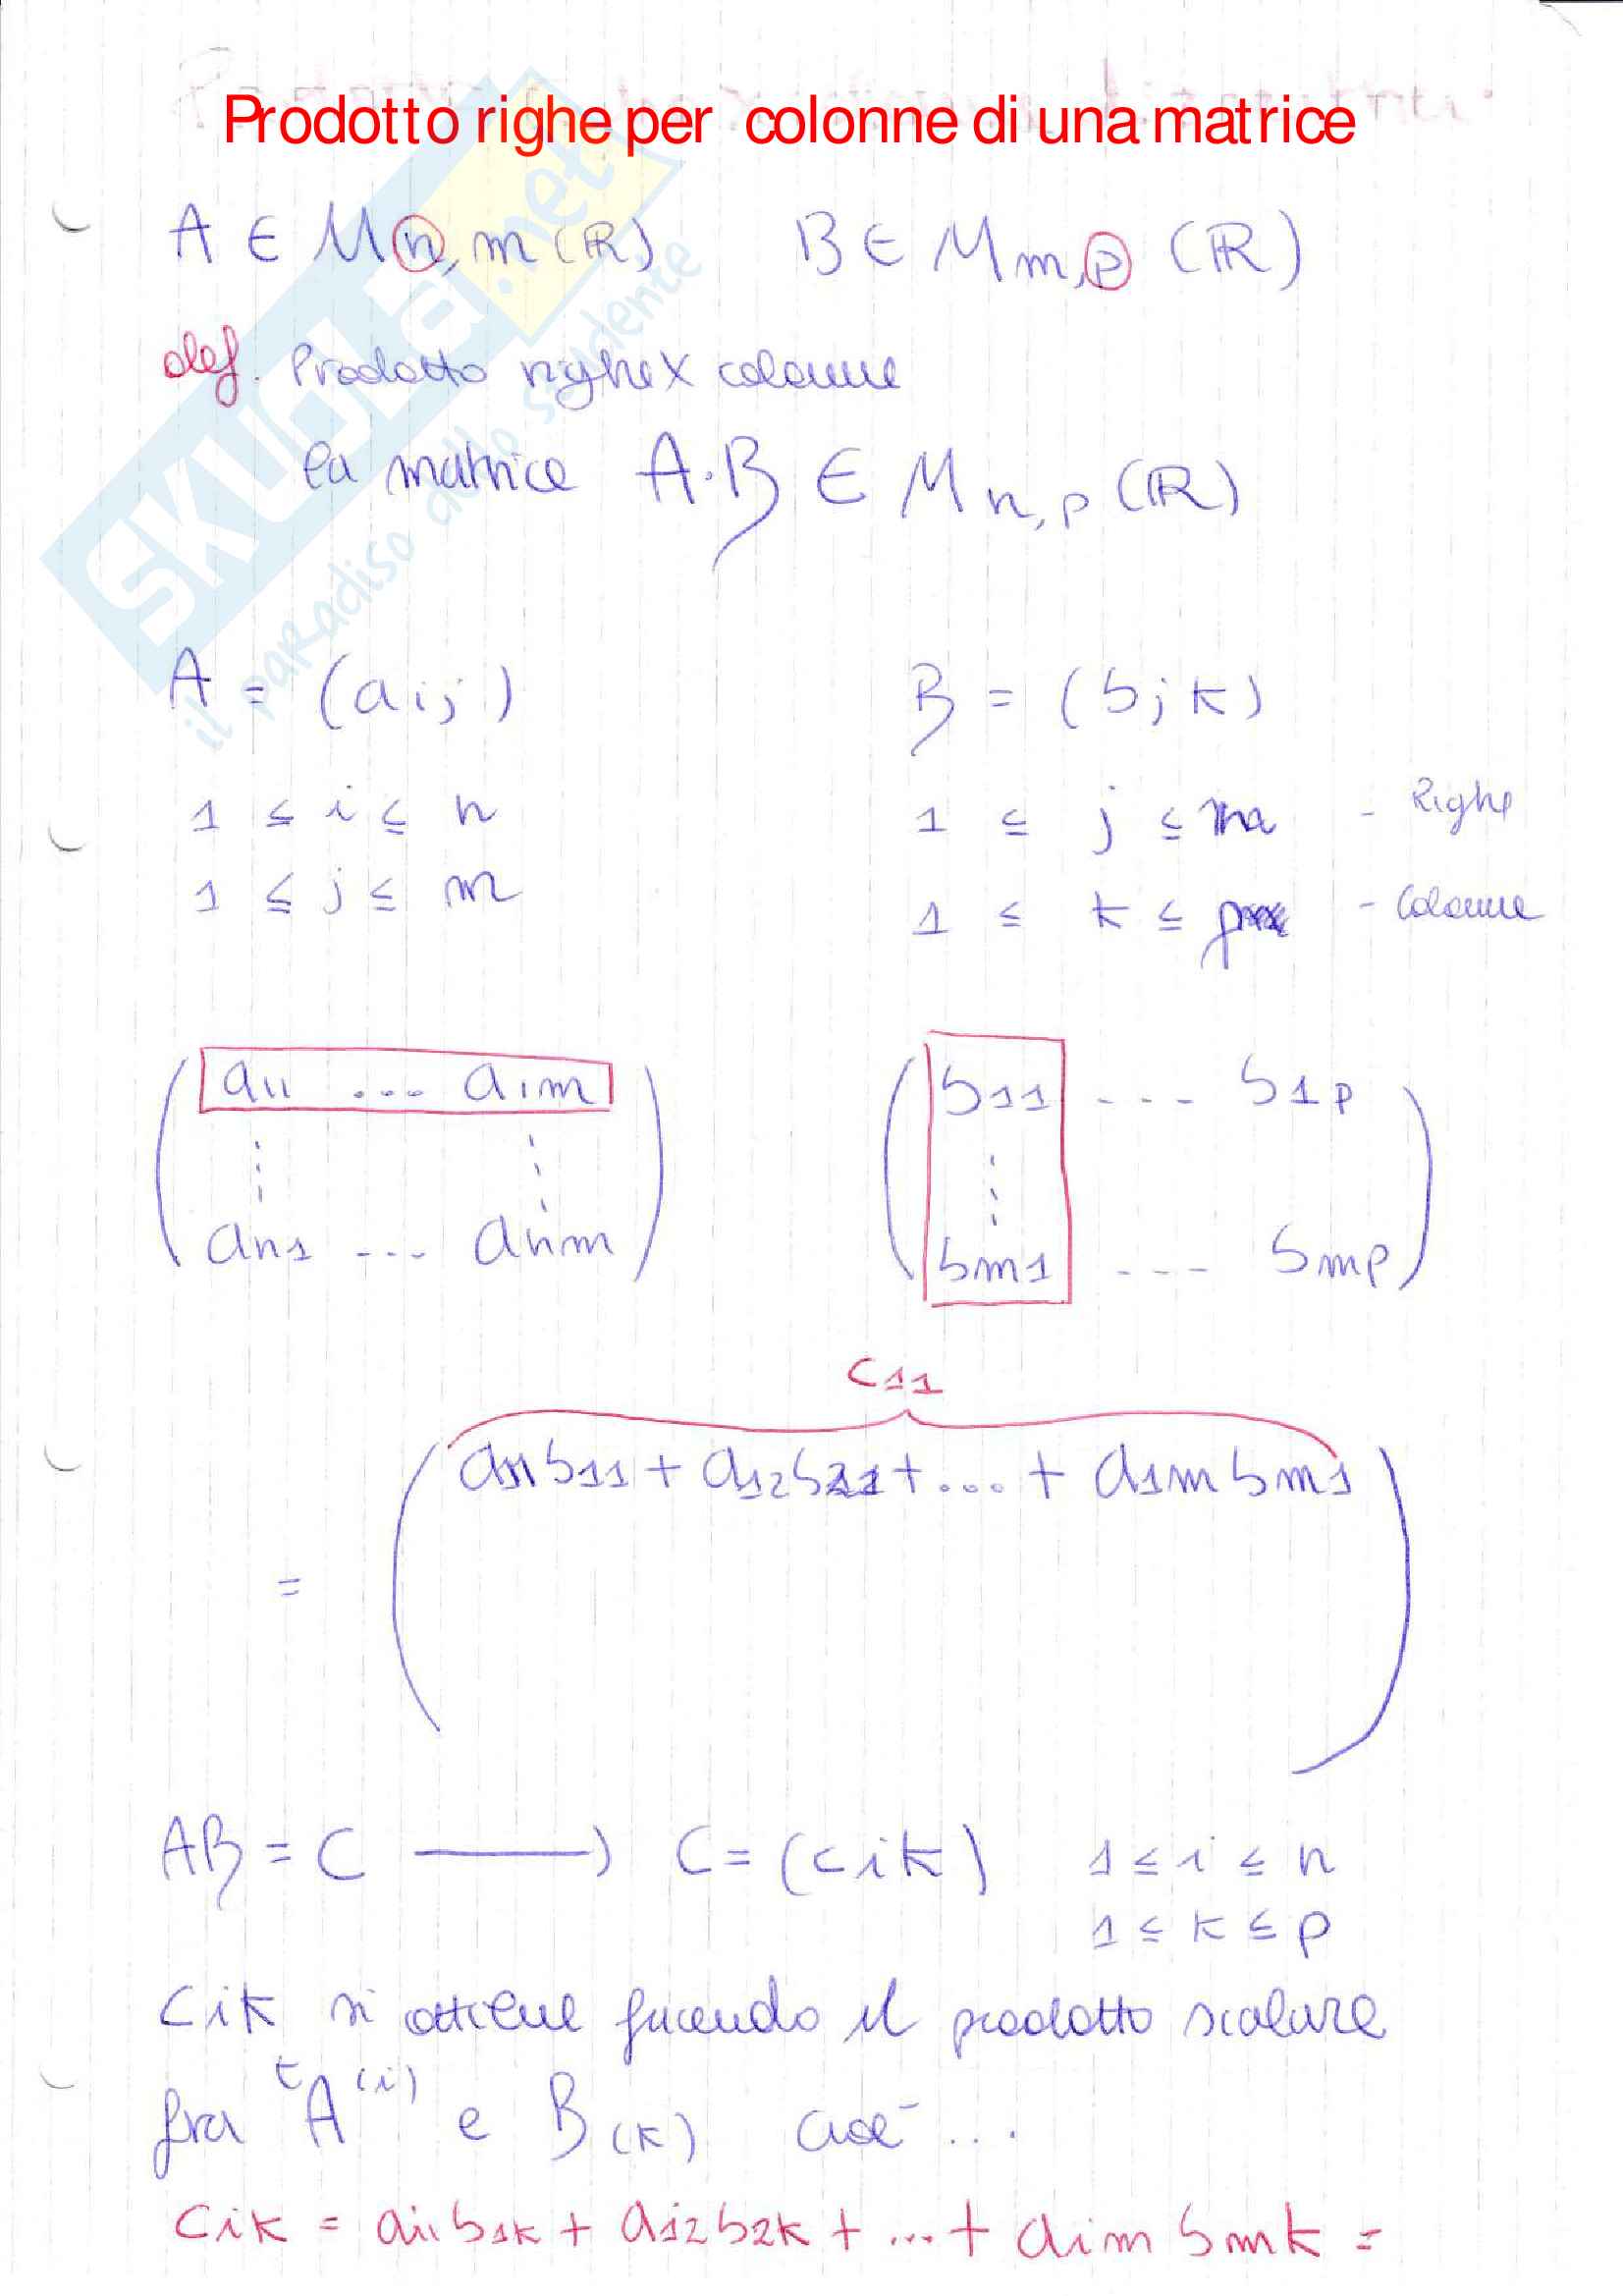 Prodotto righe per colonne di una matrice
A ∈ M n,m (ℝ) B ∈ M m,p (ℝ)
def. Prodotto righe x colonne
la matrice A·B ∈ M n,p (ℝ)
A = (aij) B = (bjk)
1 ≤ i ≤ n 1 ≤ j ≤ m - Righe
1 ≤ j ≤ m 1 ≤ k ≤ p - Colonne
a11 ... a1m b11 --- b1p
⋮ ⋮ ⋮
an1 ... anm bm1 --- bmp
c11
= ( a11b11 + a12b21 + ... + a1m bm1 )
AB = C ⟶ C = (cik) 1 ≤ i ≤ n
1 ≤ k ≤ p
Cik si ottiene facendo il prodotto scalare
fra tA(i) e B(k) cioè ...
Cik = ai1b1k + ai2b2k + ... + aim bmk =
SKUOLA.net
il paradiso dello studente